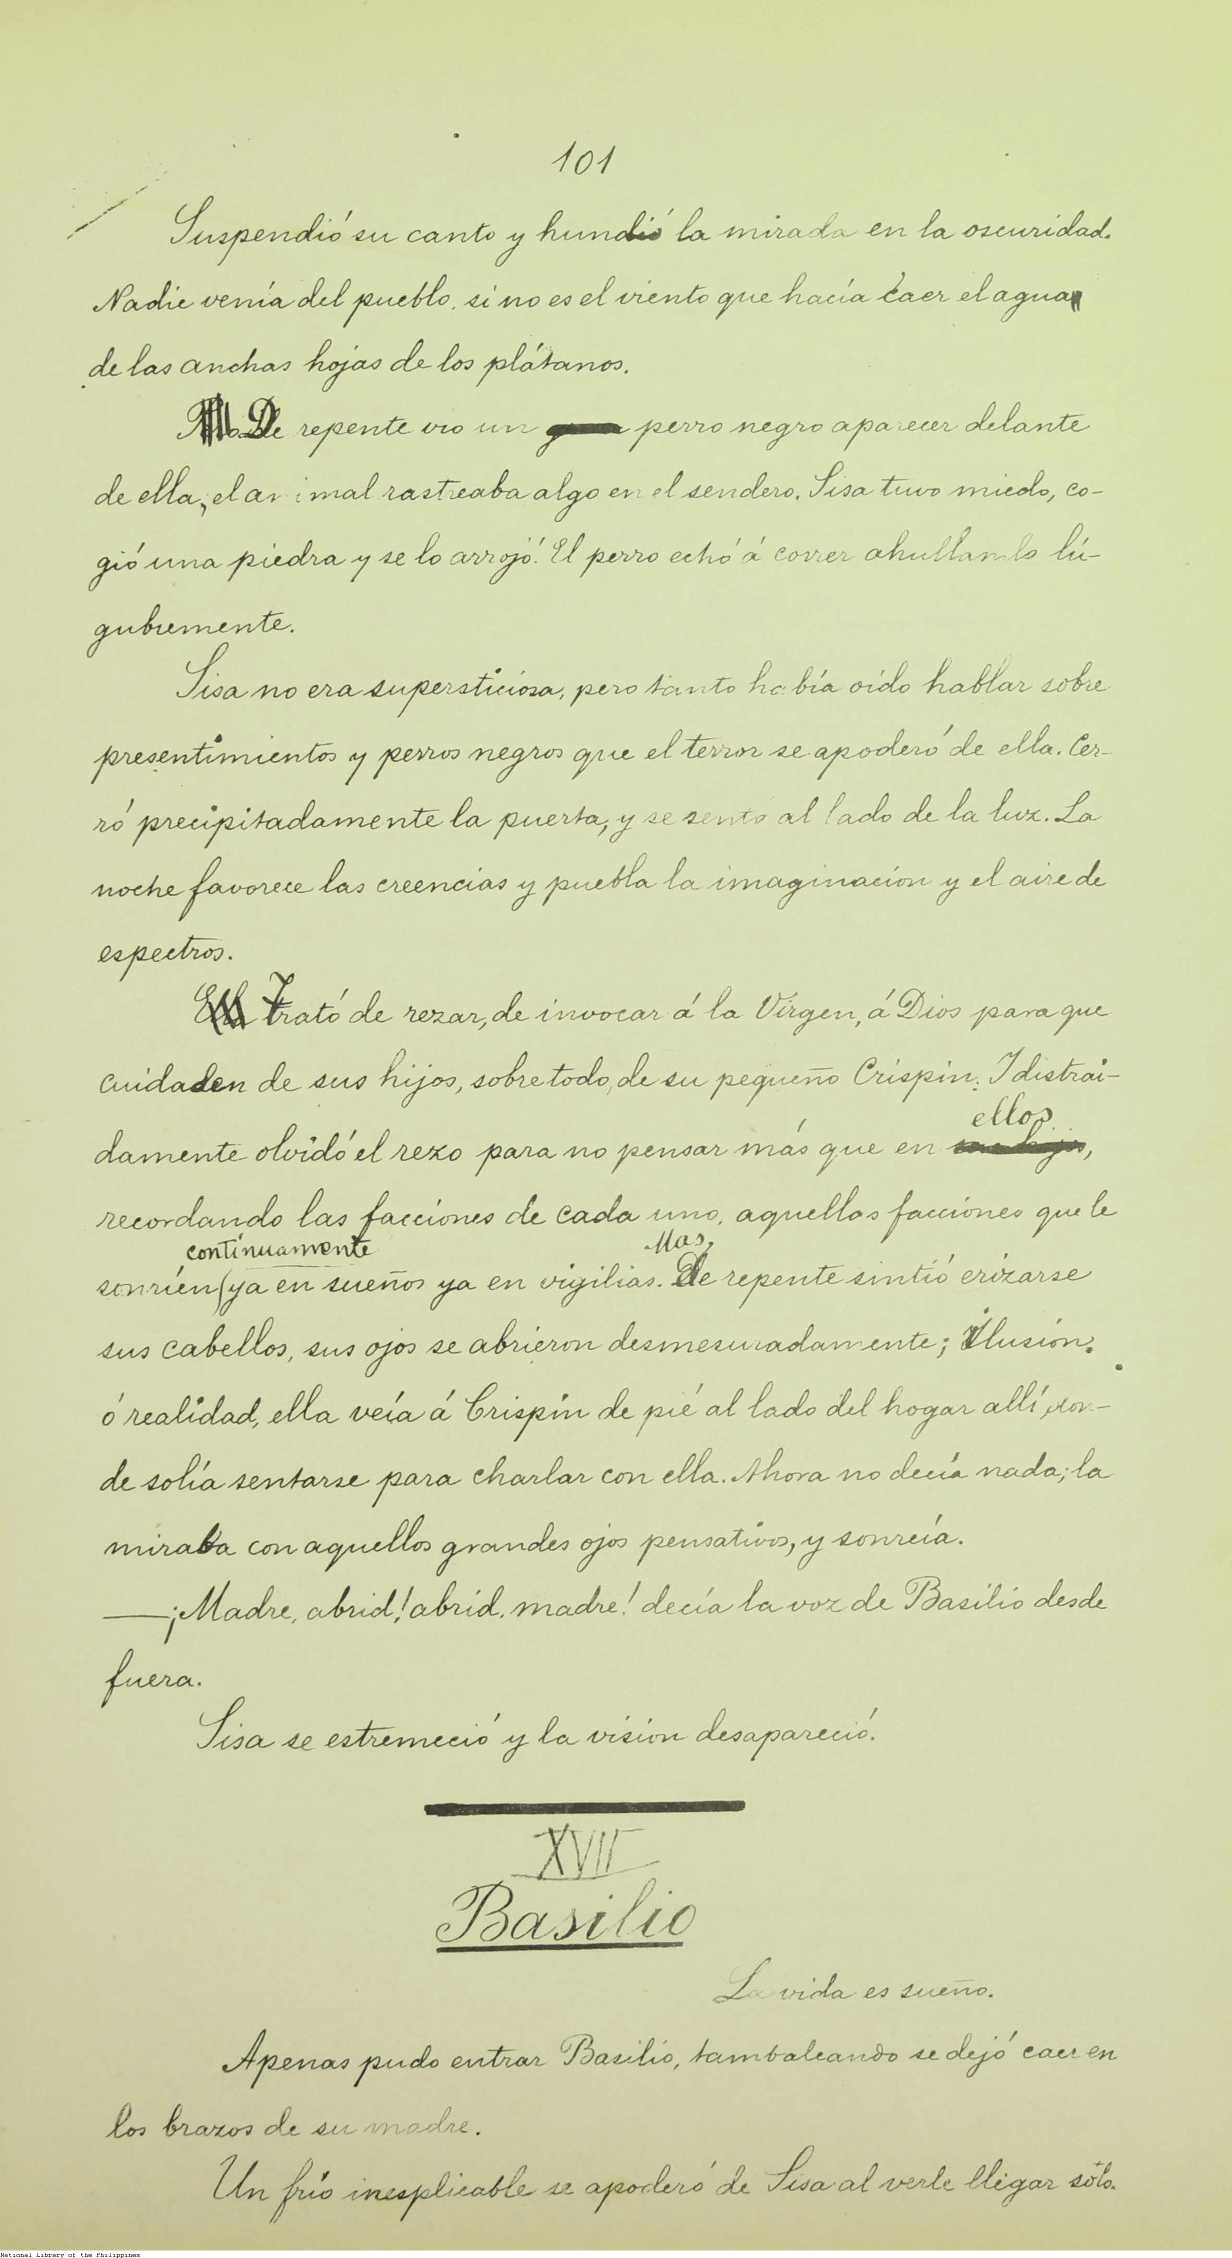 101
Suspendió su canto y hundió la mirada en la oscuridad.
Nadie venía del pueblo, si no es el viento que hacía caer el agua
de las anchas hojas de los plátanos.
De repente vio un perro negro aparecer delante
de ella, el animal rastreaba algo en el sendero. Sisa tuvo miedo, co-
gió una piedra y se lo arrojó. El perro echó á correr ahullando lú-
gubremente.
Sisa no era supersticiosa, pero tanto había oído hablar sobre
presentimientos y perros negros que el terror se apoderó de ella. Cer-
ró precipitadamente la puerta, y se sentó al lado de la luz. La
noche favorece las creencias y puebla la imaginación y el aire de
espectros.
Ella Trató de rezar, de invocar á la Virgen, á Dios para que
cuidasen de sus hijos, sobre todo, de su pequeño Crispin. Y distrai-
ellos
damente olvidó el rezo para no pensar más que en sus hijos,
recordando las facciones de cada uno, aquellas facciones que le
continuamente Mas,
sonríen ya en sueños ya en vigilias. de repente sintió erizarse
sus cabellos, sus ojos se abrieron desmesuradamente; ilusión
ó realidad, ella veía á Crispín de pié al lado del hogar allí don-
de solía sentarse para charlar con ella. Ahora no decía nada; la
miraba con aquellos grandes ojos pensativos, y sonreía.
—¡Madre, abrid! abrid, madre! decía la voz de Basilio desde
fuera.
Sisa se estremeció y la visión desapareció.
XVII
Basilio
La vida es sueño.
Apenas pudo entrar Basilio, tambaleando se dejó caer en
los brazos de su madre.
Un frío inesplicable se apoderó de Sisa al verle llegar sólo.
National Library of the Philippines